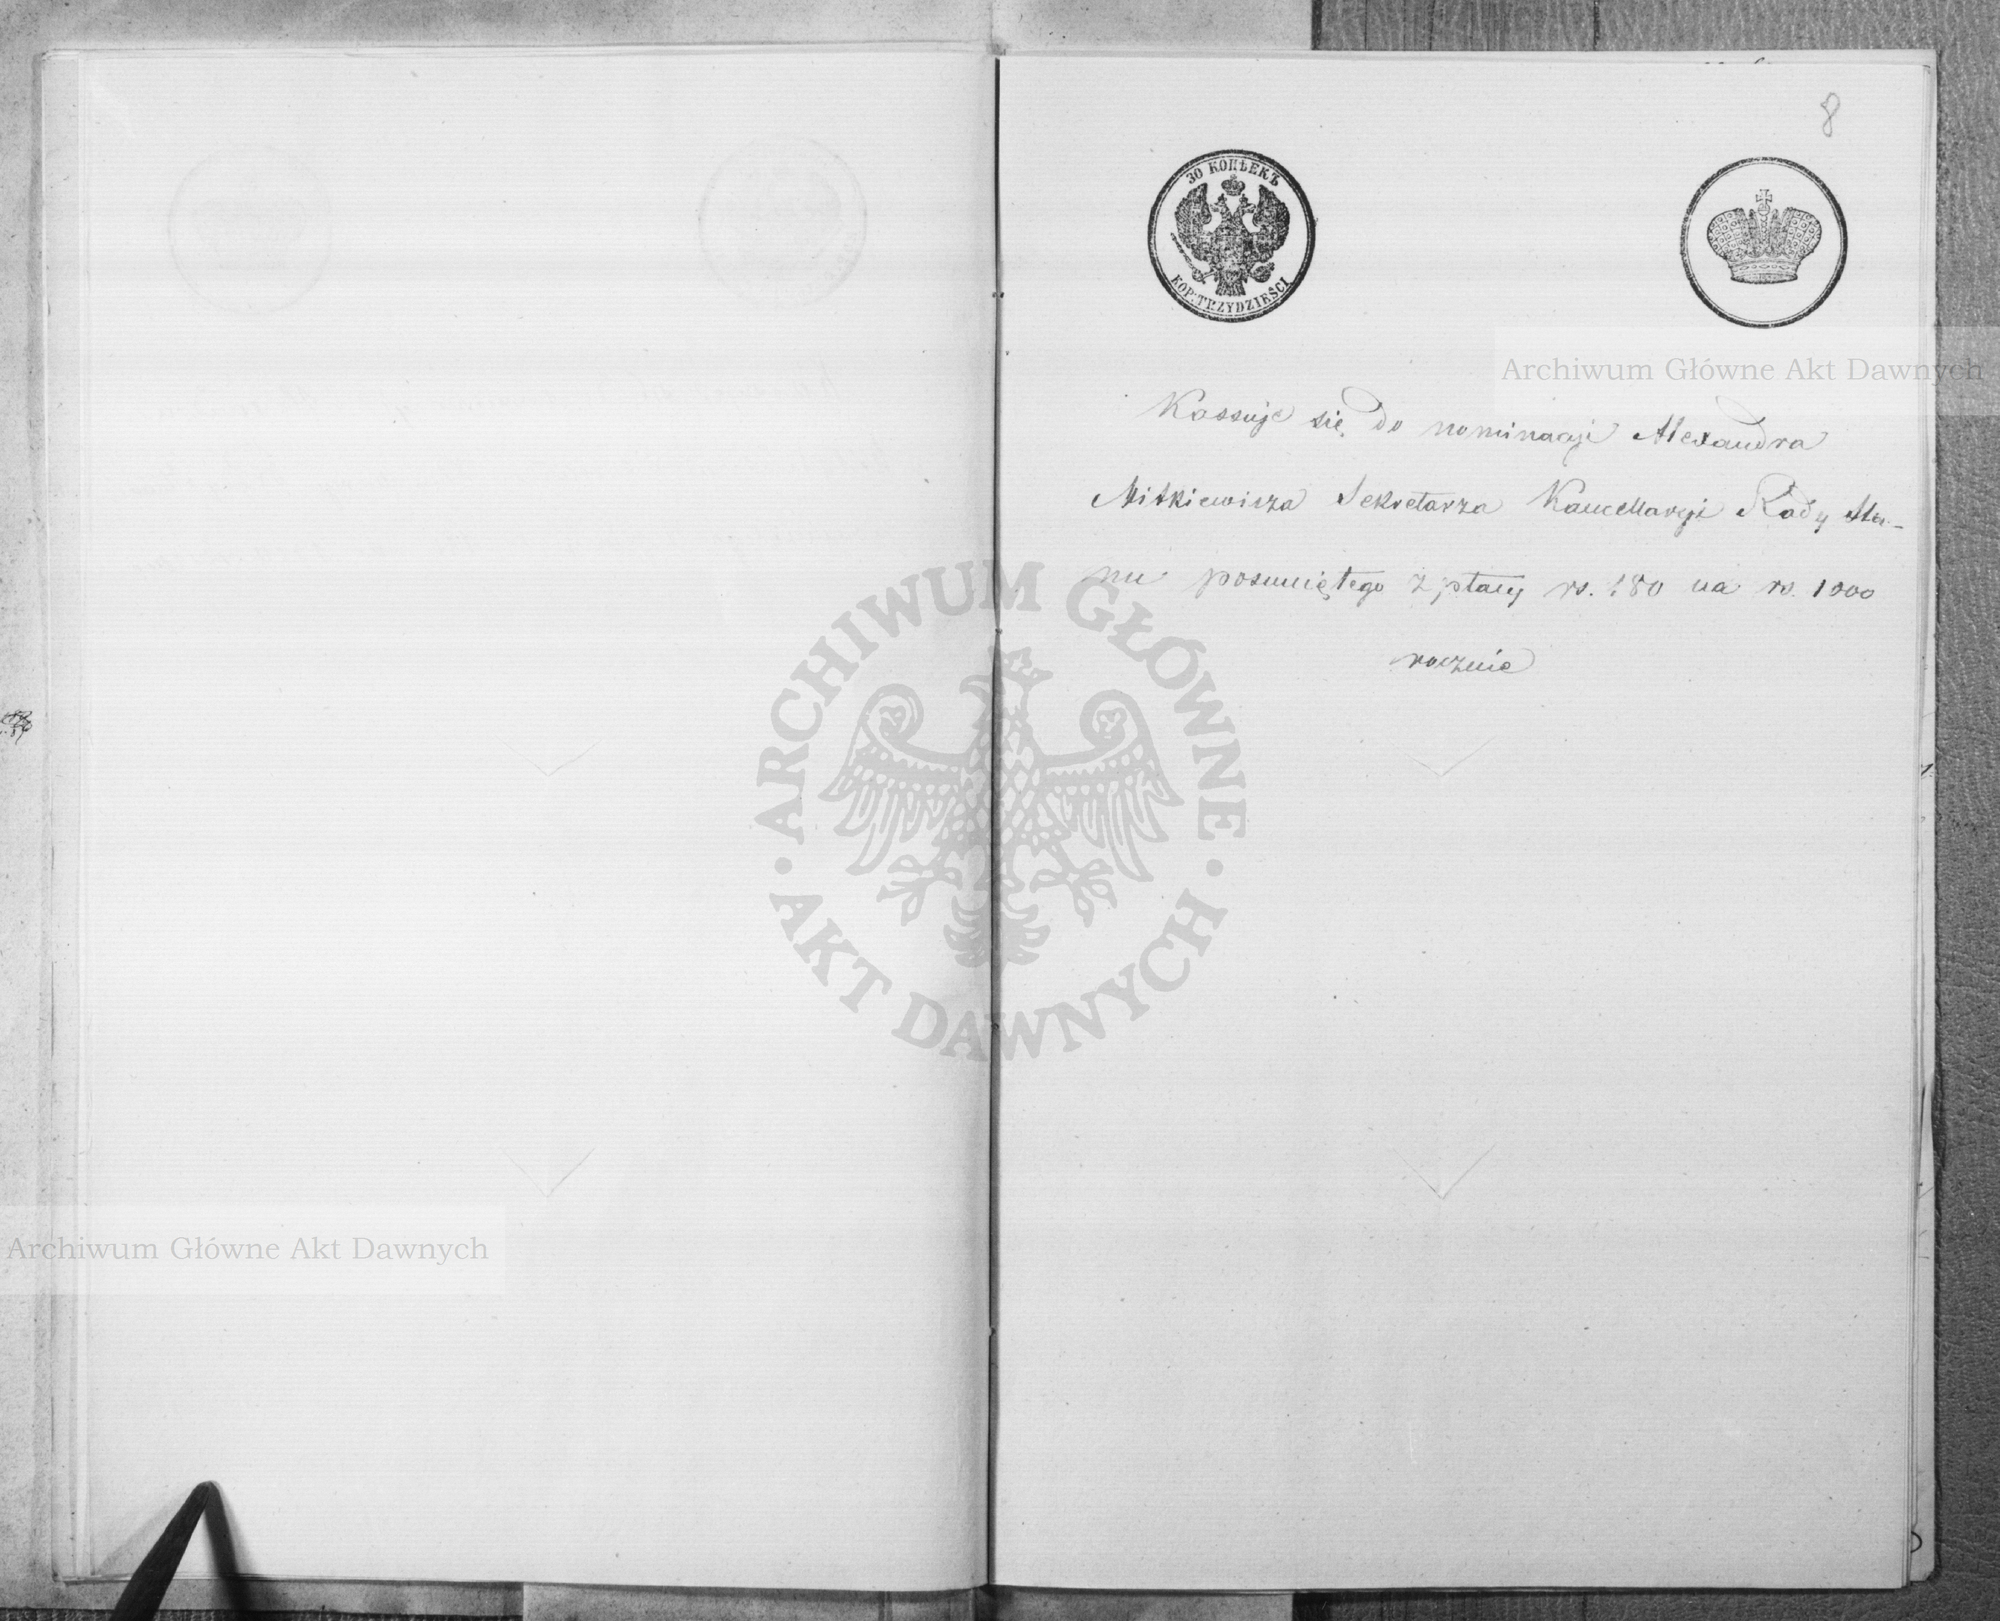 8
30 КОПѢЕКЪ
KOP: TRZYDZIEŚCI
Archiwum Główne Akt Dawnych
Kassuje się do nominacji Alexandra
Mitkiewicza Sekretarza Kancellaryi Rady Sta-
nu posuniętego z płacy rs. 180 na rs. 1000
rocznie
ARCHIWUM GŁÓWNE
AKT DAWNYCH
Archiwum Główne Akt Dawnych